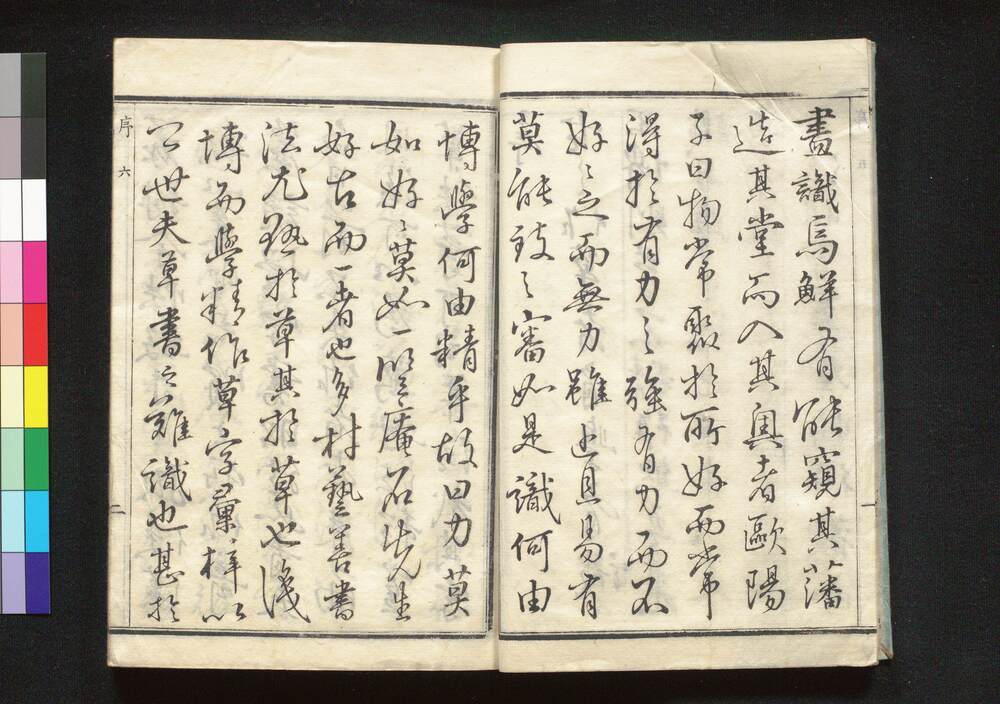 盡識焉鮮有能窺其藩
造其堂而入其奧者歐陽
子曰物常聚於所好而常
得於有力之強有力而不
好〻之而無力雖近且易有
莫能致之審如是識何由
博學何由精乎故曰力莫
如好〻莫如一竪庵石先生
好古而一者也多材藝善書
法尤熟於草其於草也識
博而學精作草字彙梓以
公世夫草書之難識也甚於
序 六